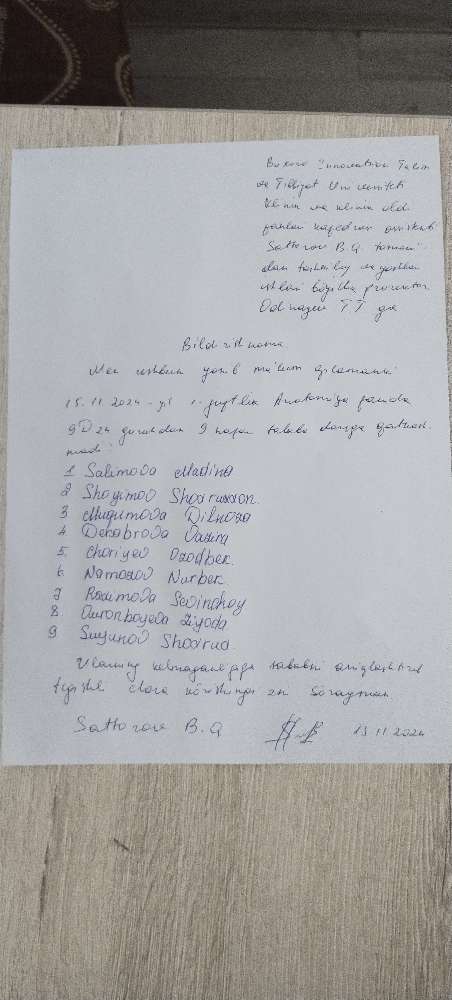 Buxoro Innovation Talim
va Tibbiyot Universiteti
Klinik va klinik oldi
fanlar kafedrasi assistenti
Sattorov B.Q. tomoni-
dan tashkiliy va yoshlar
ishlari bo'yicha prorektor
T.T. ga
Bildirishnoma
Men ushbuni yozib ma'lum qilamanki
15.11.2024-yil 1-juftlik Anatomiya fanida
9D24 guruhdan 9 nafar talaba darsga qatnash-
madi:
1 Salimova Madina
2 Shoyimov Shodruzxon.
3 Muqimova Dilnoza
4 Dekabrova
5. Choriyev Ozodbek.
6. Namozov Nurbek.
7 Raximova Sevinchoy
8. Quronboyeva Ziyoda
9 Suyunov Shoxrud.
Ularning kelmaganligiga sababni aniqlashtirib
tegishli chora ko'rishingizni So'rayman
Sattorov B.Q 15.11.2024